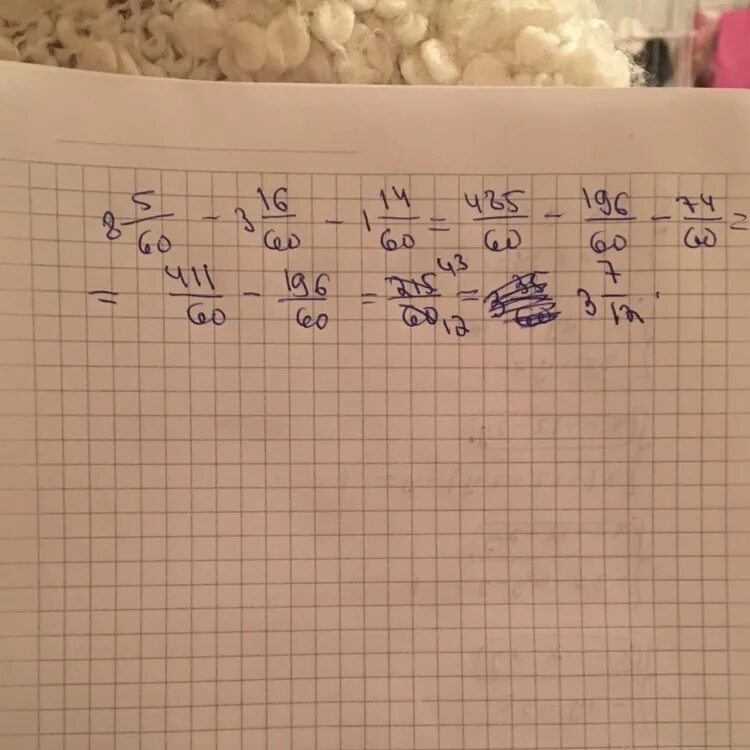 8 5/60 - 3 16/60 - 1 14/60 = 485/60 - 196/60 - 74/60 =
= 411/60 - 196/60 = 215/60 43 12 = 3 7/12.